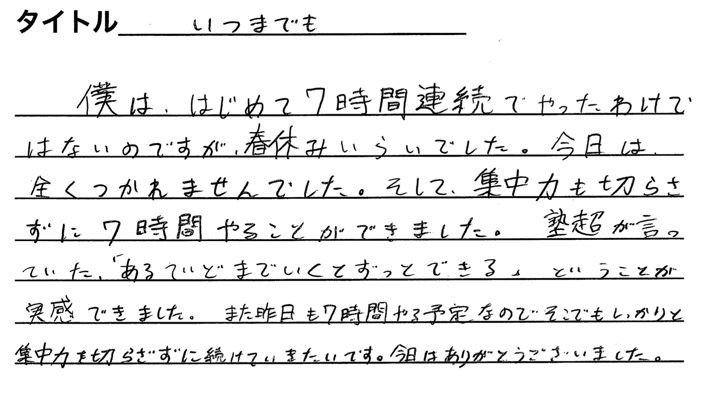 タイトル いつまでも
僕は、はじめて7時間連続でやったわけで
はないのですが、春休みいらいでした。今日は、
全くつかれませんでした。そして、集中力も切らさ
ずに7時間やることができました。塾超が言っ
ていた、「あるていどまでいくとずっとできる」ということが
実感できました。また昨日も7時間やる予定なのでそこでもしっかりと
集中力を切らさずに続けていきたいです。今日はありがとうございました。